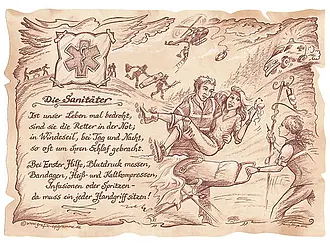 Die Sanitäter
Ist unser Leben mal bedroht,
sind sie die Retter in der Not,
in Windeseil, bei Tag und Nacht,
so oft um ihren Schlaf gebracht.
Bei Erster Hilfe, Blutdruck messen,
Bandagen, Heiß- und Kaltkompressen,
Infusionen oder Spritzen-
da muss ein jeder Handgriff sitzen!